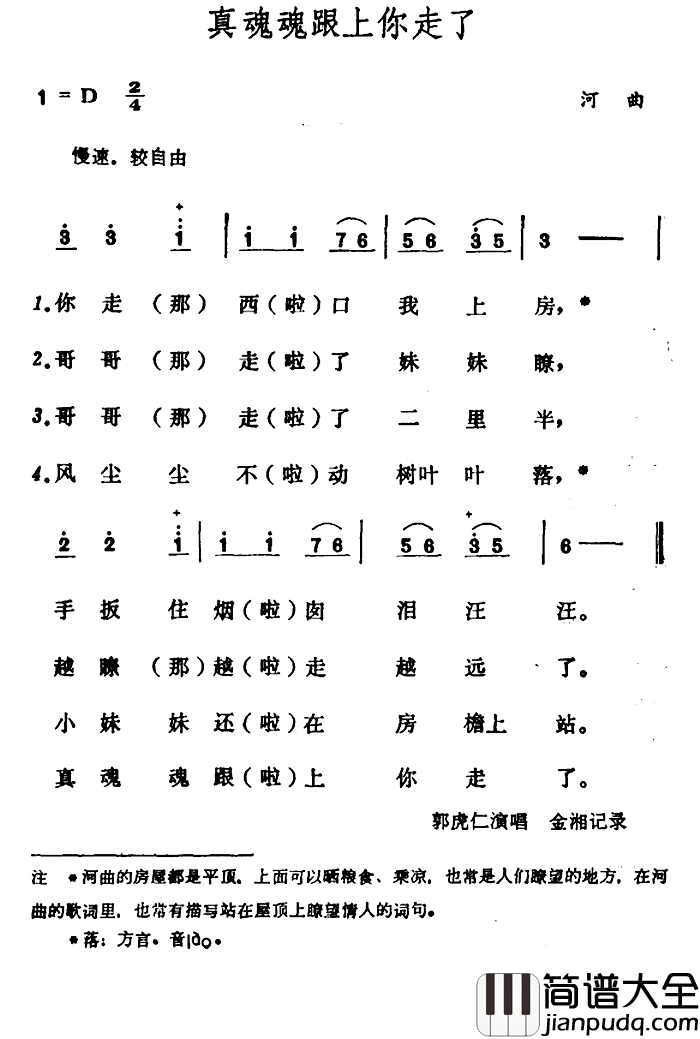 真魂魂跟上你走了
1 = D 2/4 河 曲
慢速．较自由
3 3 1 | 1 1 76 | 56 35 | 3 — |
1.你 走（那） 西（啦）口 我 上 房，*
2.哥 哥（那） 走（啦）了 妹 妹 瞭，
3.哥 哥（那） 走（啦）了 二 里 半，
4.风 尘 尘 不（啦）动 树叶 叶 落，*
2 2 1 | 1 1 76 | 56 35 | 6 — ‖
手 扳 住 烟（啦）囱 泪 汪 汪。
越 瞭（那）越（啦）走 越 远 了。
小 妹 妹 还（啦）在 房 檐上 站。
真 魂 魂 跟（啦）上 你 走 了。
郭虎仁演唱 金湘记录
注 *河曲的房屋都是平顶，上面可以晒粮食、乘凉，也常是人们瞭望的地方，在河
曲的歌词里，也常有描写站在屋顶上瞭望情人的词句。
*落：方言。音
简谱大全
jianpudq.com